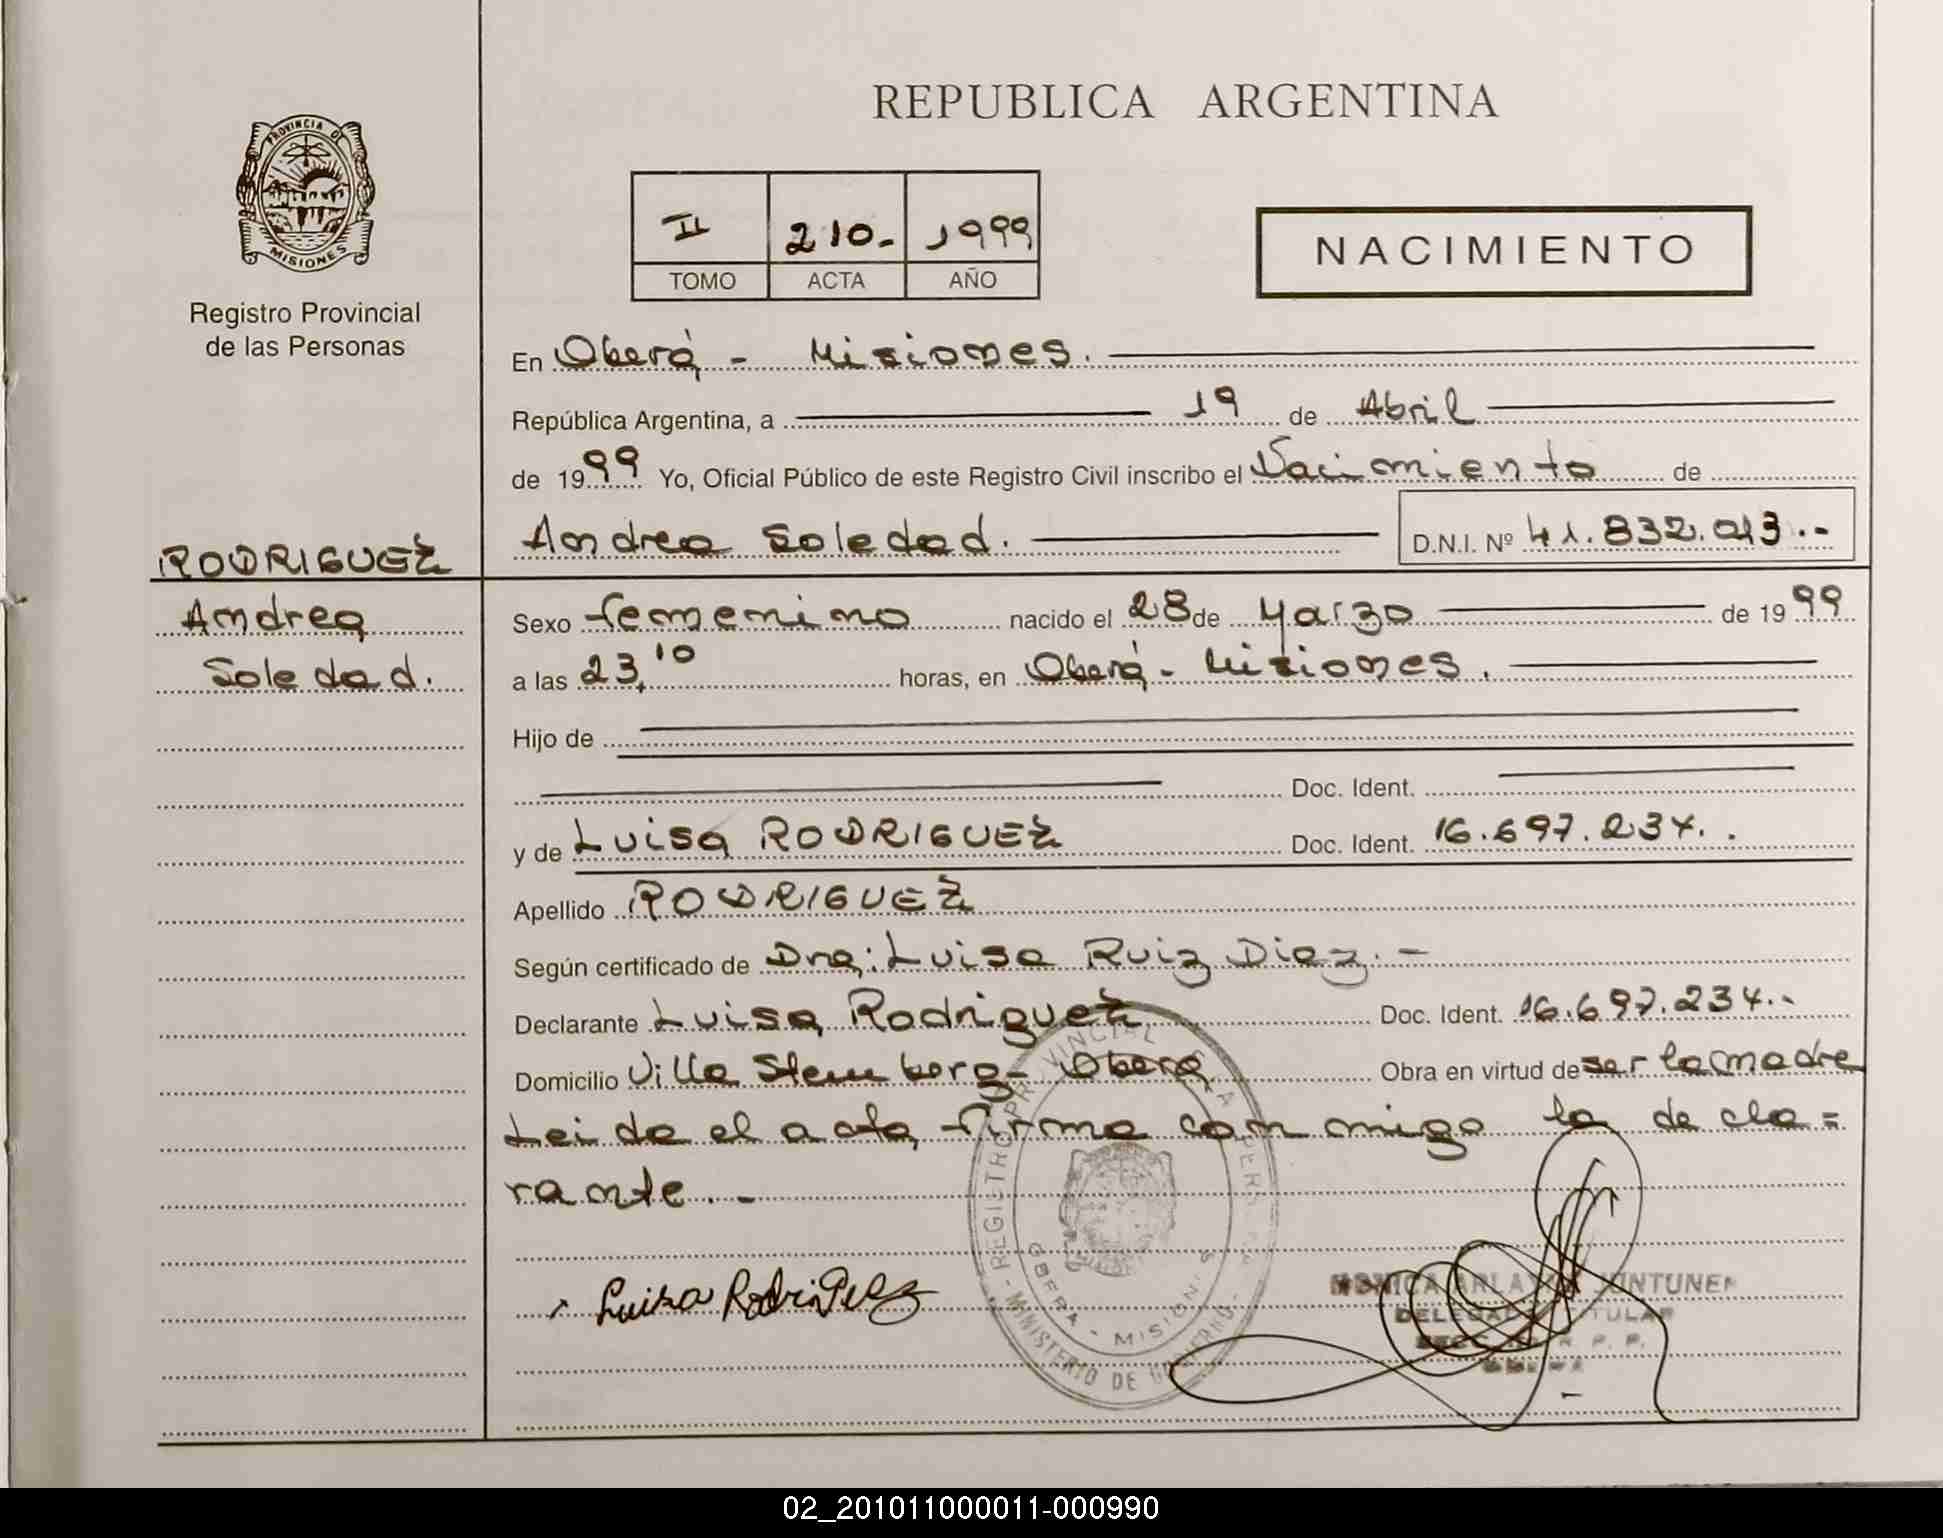 REPUBLICA ARGENTINA
PROVINCIA DE
MISIONES
Registro Provincial
de las Personas
II 210.- 1999
TOMO ACTA AÑO
NACIMIENTO
En Oberá - Misiones.
República Argentina, a 19 de Abril
de 1999 Yo, Oficial Público de este Registro Civil inscribo el Nacimiento de
Andrea Soledad. D.N.I. Nº 41.832.013.-
RODRIGUEZ
Andrea
Soledad.
Sexo femenino nacido el 28 de Marzo de 1999
a las 23,10 horas, en Oberá - Misiones.
Hijo de
Doc. Ident.
y de Luisa RODRIGUEZ Doc. Ident. 16.697.234.
Apellido RODRIGUEZ
Según certificado de Dra: Luisa Ruiz Diaz. -
Declarante Luisa Rodriguez Doc. Ident. 16.697.234.-
Domicilio Villa Oberá Obra en virtud de ser la madre
Leida el acta, firma conmigo la decla=
rante. -
Luisa Rodriguez
REGISTRO PROVINCIAL
OBERA - MISIONES
MINISTERIO DE GOBIERNO
MONICA
DELEGADA TITULAR
R. P. P.
02_201011000011-000990